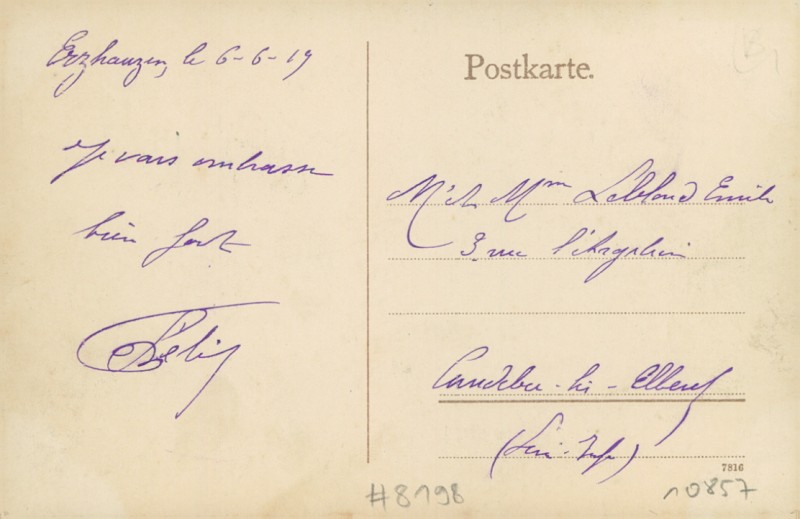 Erzhauzen, le 6-6-19
Je vais embrasse
bien fort
Postkarte.
M. et Mme Leblond Emile
3 rue l'
Caudebec-les-Elbeuf
(Sein-Inf)
7816
#8198
10857